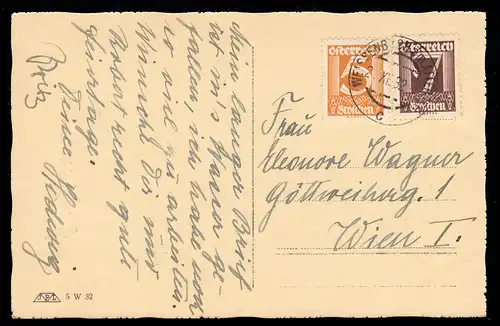 Mein langer Brief
ist in's Wasser ge-
fallen, ich habe noch
so viel zu arbeiten.
Wünsche Dir und
Robert recht gute
Feiertage.
Deine Hedwig.
Österreich
Groschen
Österreich
7
Groschen
Frau
Eleonore Wagner
Göttweiherg. 1
Wien I.
5 W 32